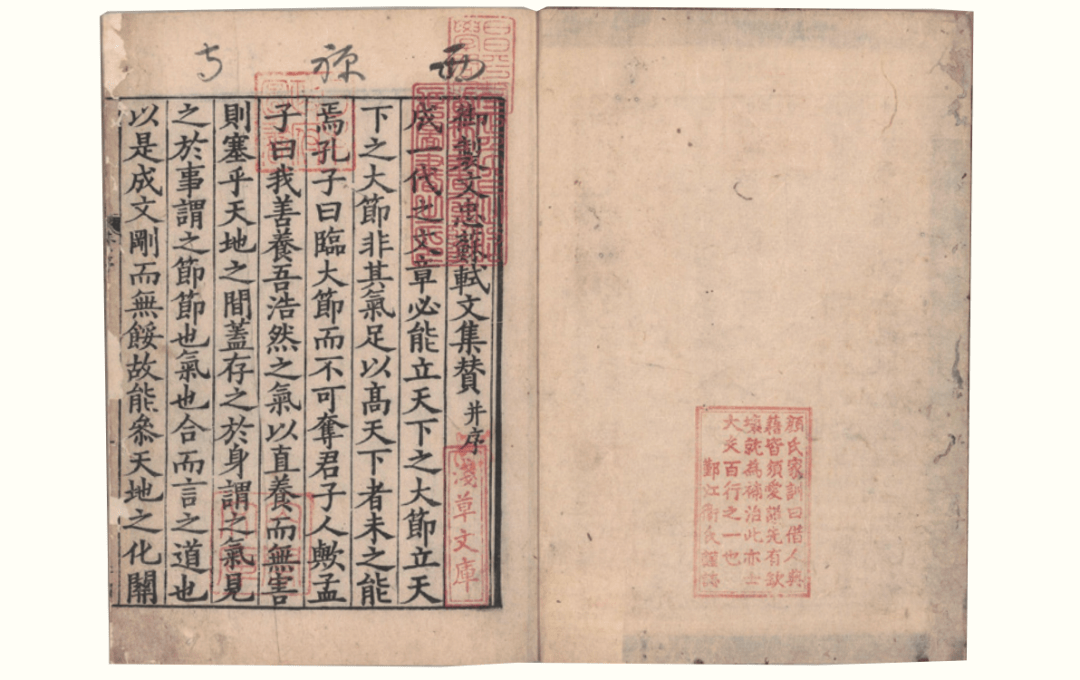 顔氏家訓曰借人典
籍皆須愛護先有缺
壞就為補治此亦士
大夫百行之一也
鄞江衛氏謹誌
西禅寺
御製文忠蘇軾文集賛并序
淺草文庫
成一代之文章必能立天下之大節立天
下之大節非其氣足以髙天下者未之能
焉孔子曰臨大節而不可奪君子人歟孟
子曰我善養吾浩然之氣以直養而無害
則塞乎天地之間蓋存之於身謂之氣見
之於事謂之節節也氣也合而言之道也
以是成文剛而無餒故能叅天地之化關